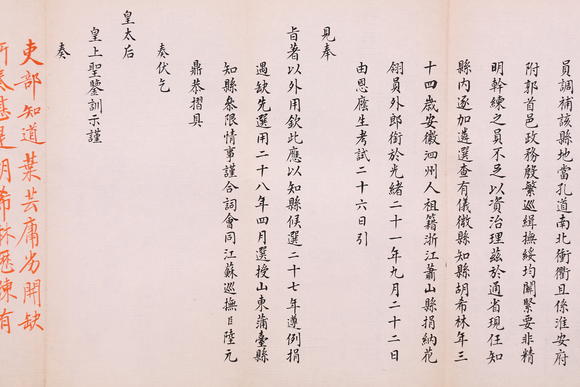 員調補該縣地當孔道南北衝衢且係淮安府
附郭首邑政務殷繁巡緝撫綏均關緊要非精
明幹練之員不足以資治理茲於通省現任知
縣內逐加遴選查有儀徵縣知縣胡希林年三
十四歲安徽泗州人祖籍浙江蕭山縣捐納花
翎員外郎銜於光緒二十一年九月二十二日
由恩廕生考試二十六日引
見奉
旨著以外用欽此應以知縣候選二十七年遵例捐
遇缺先選用二十八年四月選授山東蒲臺縣
知縣參限情事謹合詞會同江蘇巡撫臣陸元
鼎恭摺具
奏伏乞
皇太后
皇上聖鑒訓示謹
奏
吏部知道葉芸庸劣開缺
所奏甚是胡希林歷練有